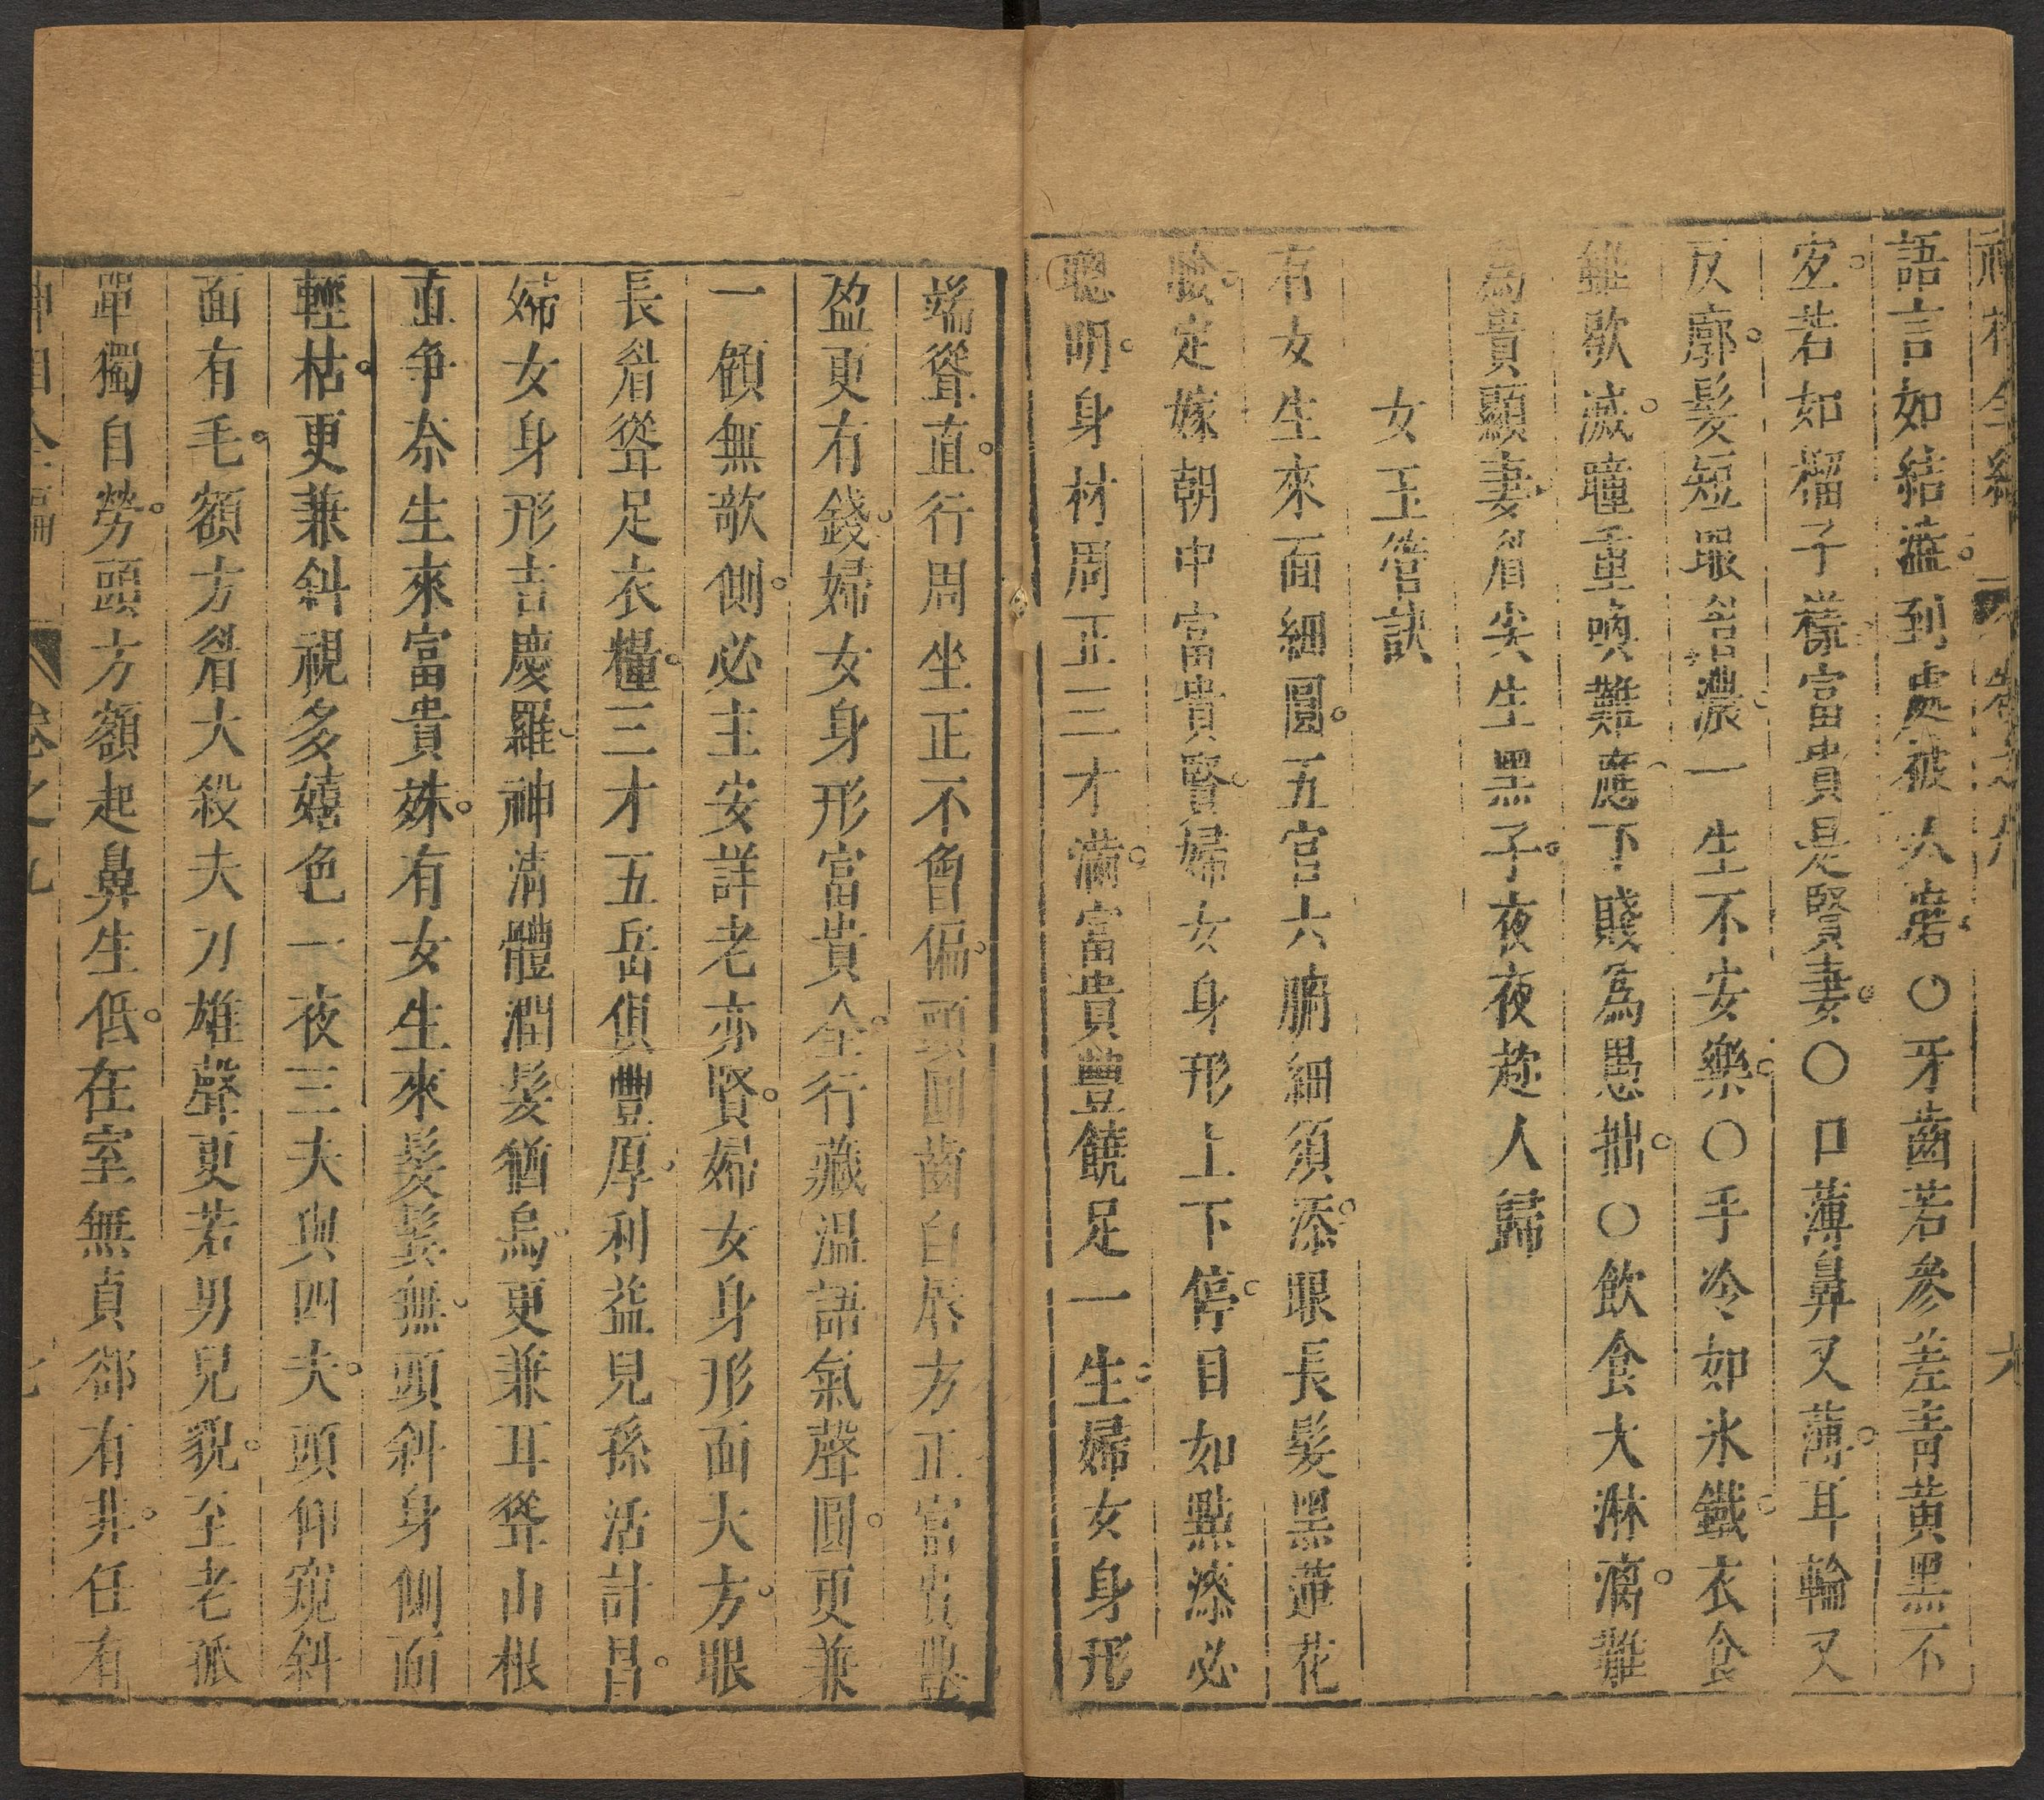 語言如結澁。到處被人磨。○牙齒若參差青黃黑不
定。若如榴子樣富貴是賢妻。○口薄鼻又薄。耳輪又
反廓。髮短眼睂濃一生不安樂。○手冷如氷鐵。衣食
雖歇滅。曈重喚難應下賤為愚拙。○飲食大淋漓。難
為貴顯妻。眉尖生黑子。夜夜趂人歸
女玉管訣
有女生來面細圓。五官六腑細須添。眼長髮黑蓮花
臉。定嫁朝中富貴賢。婦女身形上下停。目如點漆必
聰明。身材周正三才滿。富貴豐饒足一生。婦女身形
端聳直。行周坐正不曾偏。頭圓齒白唇方正富貴豐
盈更有錢。婦女身形富貴全。行藏溫語氣聲圓。更兼
一顧無欹側。必主安詳老亦賢。婦女身形面大方。眼
長睂聳足衣糧。三才五岳俱豐厚。利益兒孫活計昌。
婦女身形吉慶羅。神清體潤髮猶烏。更兼耳聳山根
直爭奈生來富貴姝。有女生來髮鬂無。頭斜身側面
輕枯。更兼斜視多嬉色一夜三夫與四夫。頭仰窺斜
面有毛。額方睂大殺夫刀雄聲更若男兒貌。至老孤
單獨自勞。頭方額起鼻生低。在室無貞郤有非。任有
卷之九